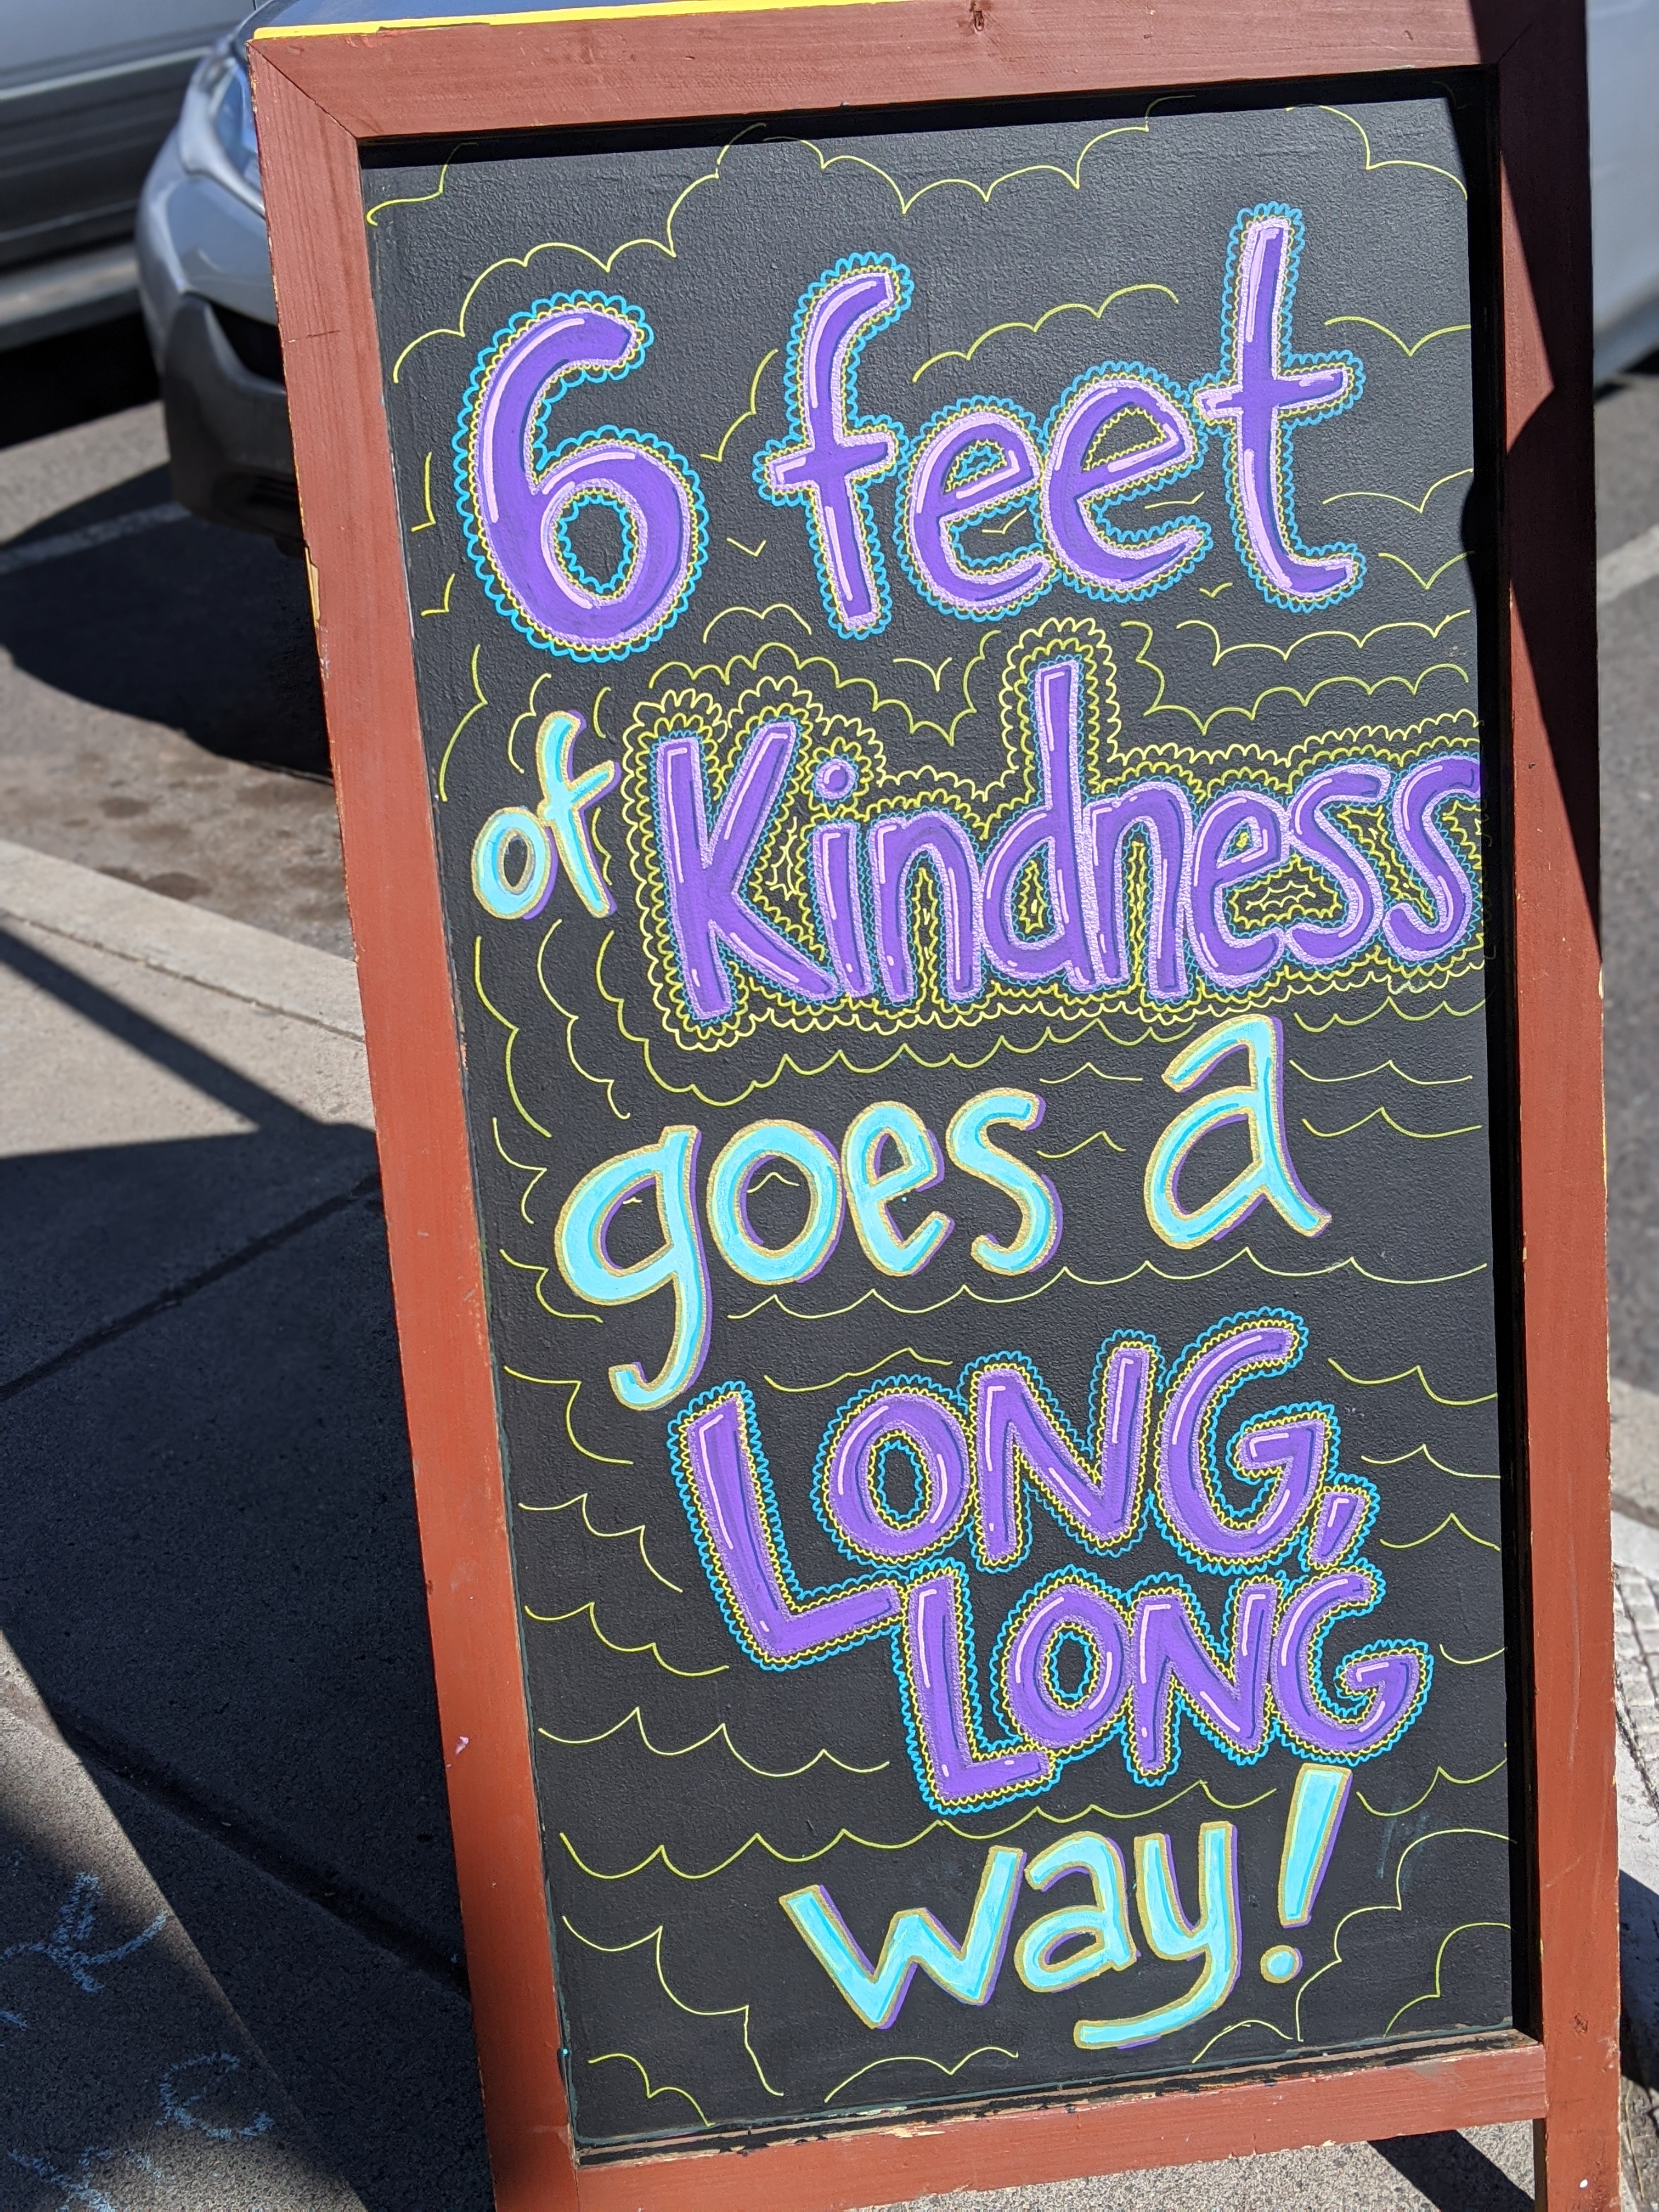 6 feet
of Kindness
goes a
LONG,
LONG
way!